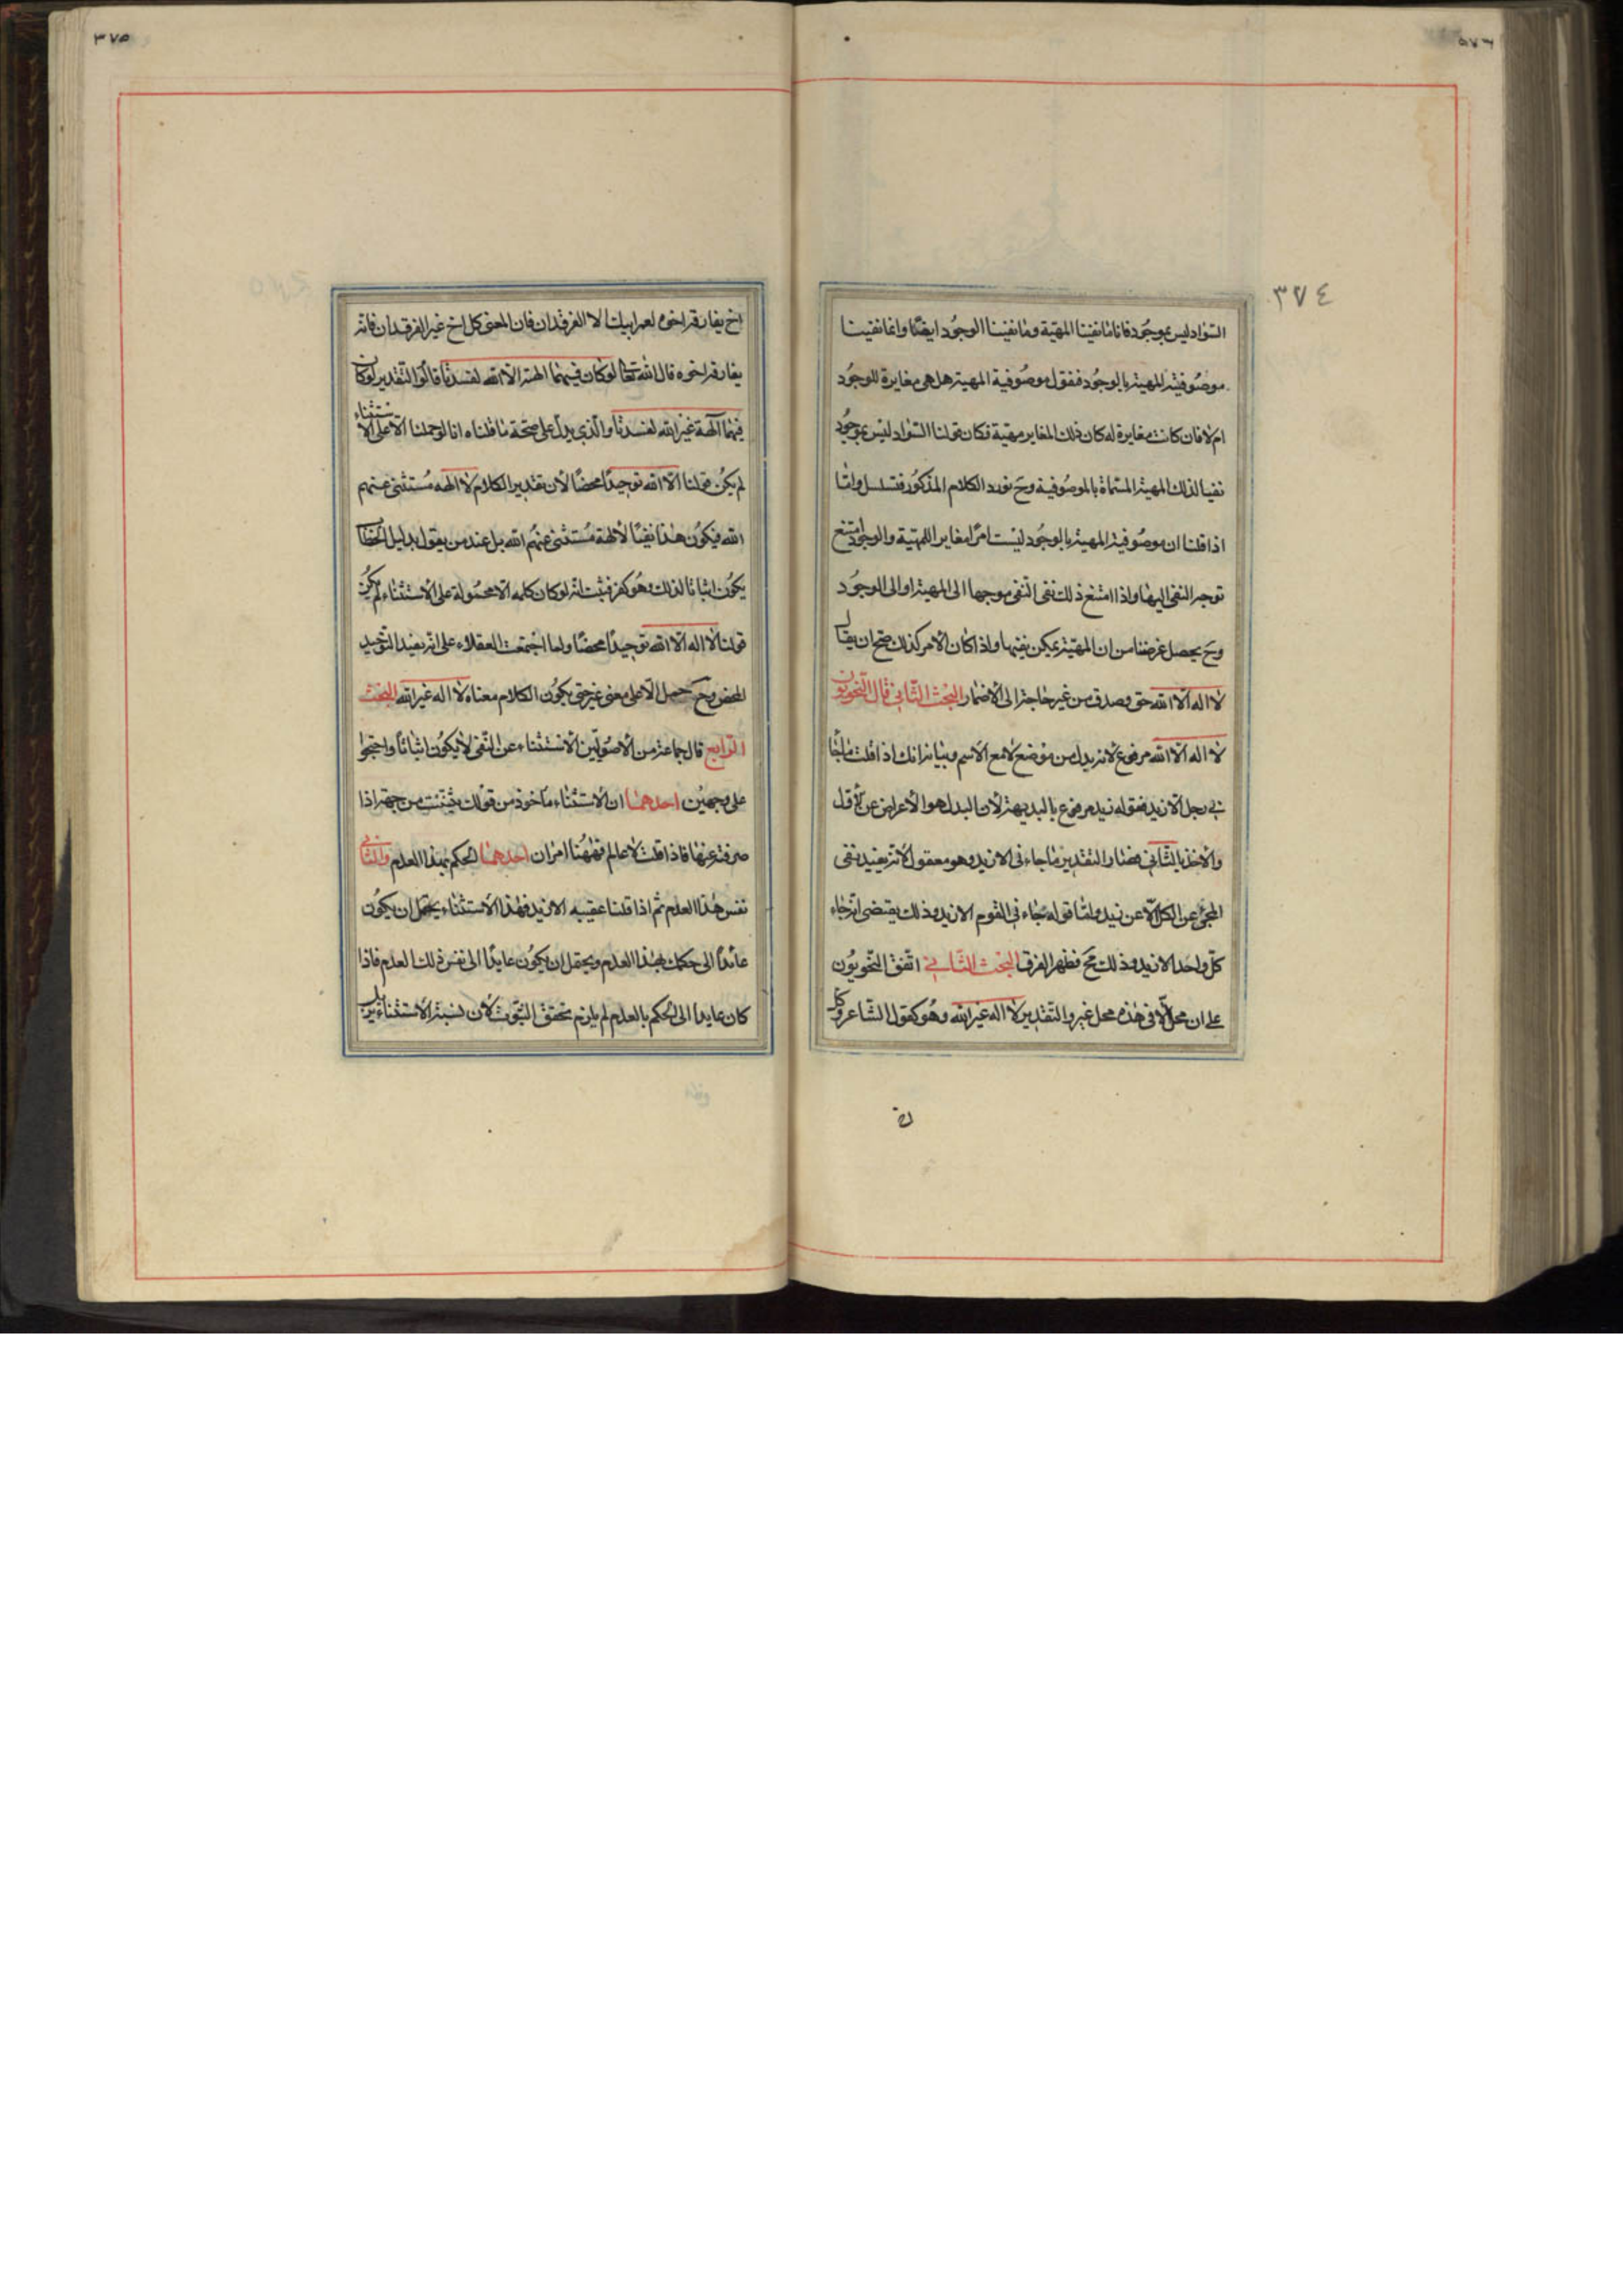 ٣٧٤
السواد ليس بموجود فانا ما نفينا المهية وما نفينا الوجود ايضًا وانما نفينا
موصوفية المهية بالوجود فنقول موصوفية المهية هل هى مغايرة للوجود
ام لا فان كانت مغايرة له كان ذلك المغاير مهية فكان قولنا السواد ليس بموجود
نفيا لذلك المهية المسماة بالموصوفية وح نورد الكلام المذكور فتسلسل واما
اذا قلنا ان موصوفية المهية بالوجود ليست امرًا مغاير اللمهية والوجود امتنع
توجه النفى اليها واذا امتنع ذلك نفى النفى موجها الى المهية او الى الوجود
وح يحصل غرضنا من ان المهية يمكن نفيها واذا كان الامر كذلك صح ان يقال
لا اله الا الله حق وصدق من غير حاجة الى الاضمار البحث الثانى قال النحويون
لا اله الا الله مرفوع لانه بدل من موضع لا مع الاسم وبيانه انك اذا قلت ما جا
نى رجل الا زيد فقوله زيد مرفوع بالبديهة لان البدل هو الاعراض عن الاول
والاخذ بالثانى فصار التقدير ما جاءنى الا زيد وهو معقول لانه يفيد نفى
المجئ عن الكل الا عن زيد واما قوله جاءنى القوم الا زيد وذلك يقتضى انه جاء
كل واحد الا زيد وذلك مح فظهر الفرق البحث الثالث اتفق النحويون
على ان محل الا فى هذه محل غير والتقدير لا اله غير الله وهو كقول الشاعر وكل
٣٧٥
اخ يفارقه اخوه لعمر ابيك الا الفرقدان فان المعنى كل اخ غير الفرقدان فانه
يفارقه اخوه قال الله تعا لو كان فيهما الهة الا الله لفسدتا قالوا التقدير لو كان
فيهما آلهة غير الله لفسدتا والذى يدل على صحة ما قلناه انا لو حملنا الا على الاستثناء
لم يكن قولنا الا الله توحيدًا محضًا لان تقدير الكلام لا الهه مستثنى عنهم
الله فيكون هذا نفيًا لآلهة مستثنى عنهم الله بل عند من يقول بدليل الخطاب
يكون اثباتا لذلك وهو كفر فثبت انه لو كان كلمه الا محمولة على الاستثناء لم يكن
قولنا لا اله الا الله توحيدًا محضًا ولما اجتمعت العقلاء على انه يفيد التوحيد
المحض وح حمل الا على معنى غير حتى يكون الكلام معناه لا اله غير الله البحث
الرابع قال جماعة من الاصوليين الاستثناء عن النفى لا يكون اثباتًا واحتجوا
على وجهين احدهما ان الاستثناء ماخوذ من قولك ثنيت من جهة اذا
صرفته عنها فاذا قلت لا عالم فههنا امران احدهما الحكم بهذا العدم والثانى
نفس هذا العدم ثم اذا قلنا عقيبه الا زيد فهذا الاستثناء يحتمل ان يكون
عائدًا الى حكمك بهذا العدم ويحتمل ان يكون عايدًا الى نفس ذلك العدم فاذا
كان عايدا الى الحكم بالعدم لم يلزم تحقق الثبوت لان نسبة الاستثناء